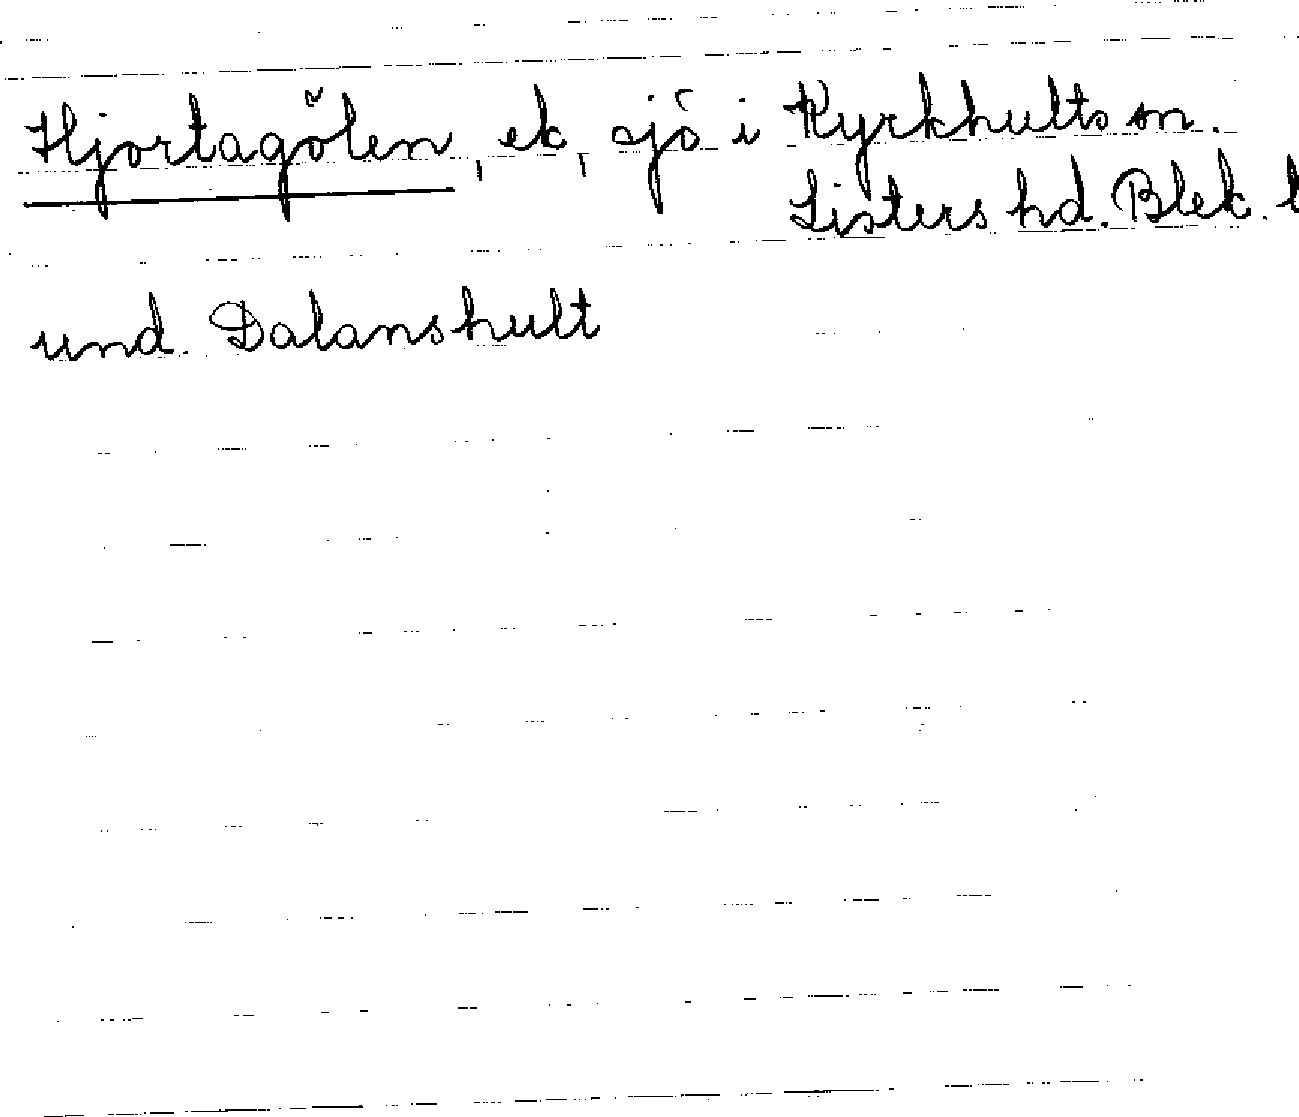 Hjortagölen, ek, sjö i Kyrkhults sn.
Listers hd. Blek. l
und. Dalanshult